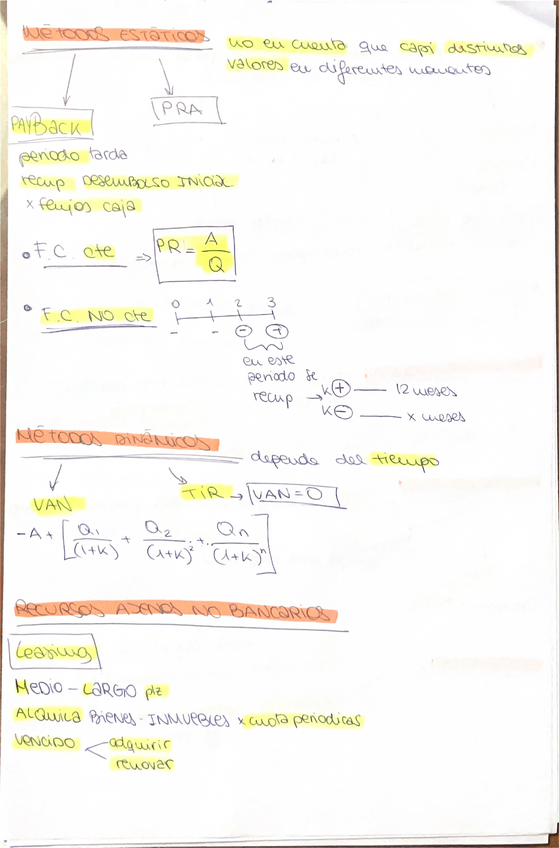 MÉTODOS ESTÁTICOS no en cuenta que capi distintos
valores en diferentes momentos
PAYBACK PRA
periodo tarda
recup DESEMBOLSO INICIAL
x flujos caja
• F.C. cte => PR = A/Q
• F.C. NO cte 0 1 2 3
- - - +
en este
periodo se
recup → K+ — 12 meses
K- — x meses
MÉTODOS DINÁMICOS depende del tiempo
VAN TIR → VAN = 0
-A + [Q1/(1+K) + Q2/(1+K)² + .. Qn/(1+K)ⁿ]
RECURSOS AJENOS NO BANCARIOS
Leasing
MEDIO - LARGO plz
ALQUILA BIENES - INMUEBLES x cuota periodicas
VENCIDO adquirir
renovar